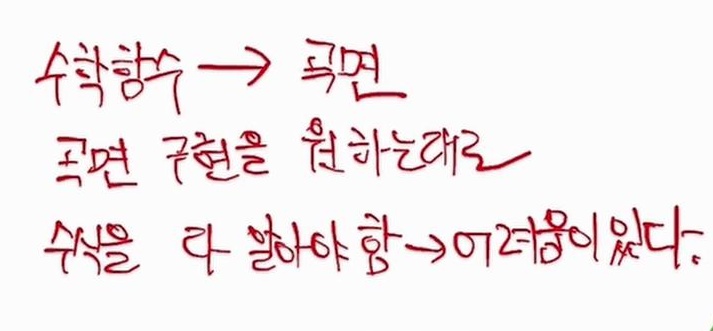 수학함수 → 곡면
곡면 구현을 원하는대로
수식을 다 알아야 함 → 어려움이 있다.